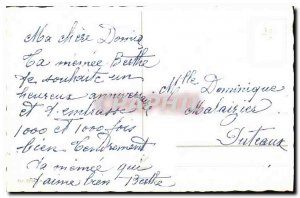 Ma chère Domie
Ta mémée Berthe
te souhaite un
heureux annivers
et t'embrasse
1000 et 1000 fois
bien tendrement
ta mémée qui
t'aime bien Berthe
Mlle Dominique
Malaizier
Puteaux